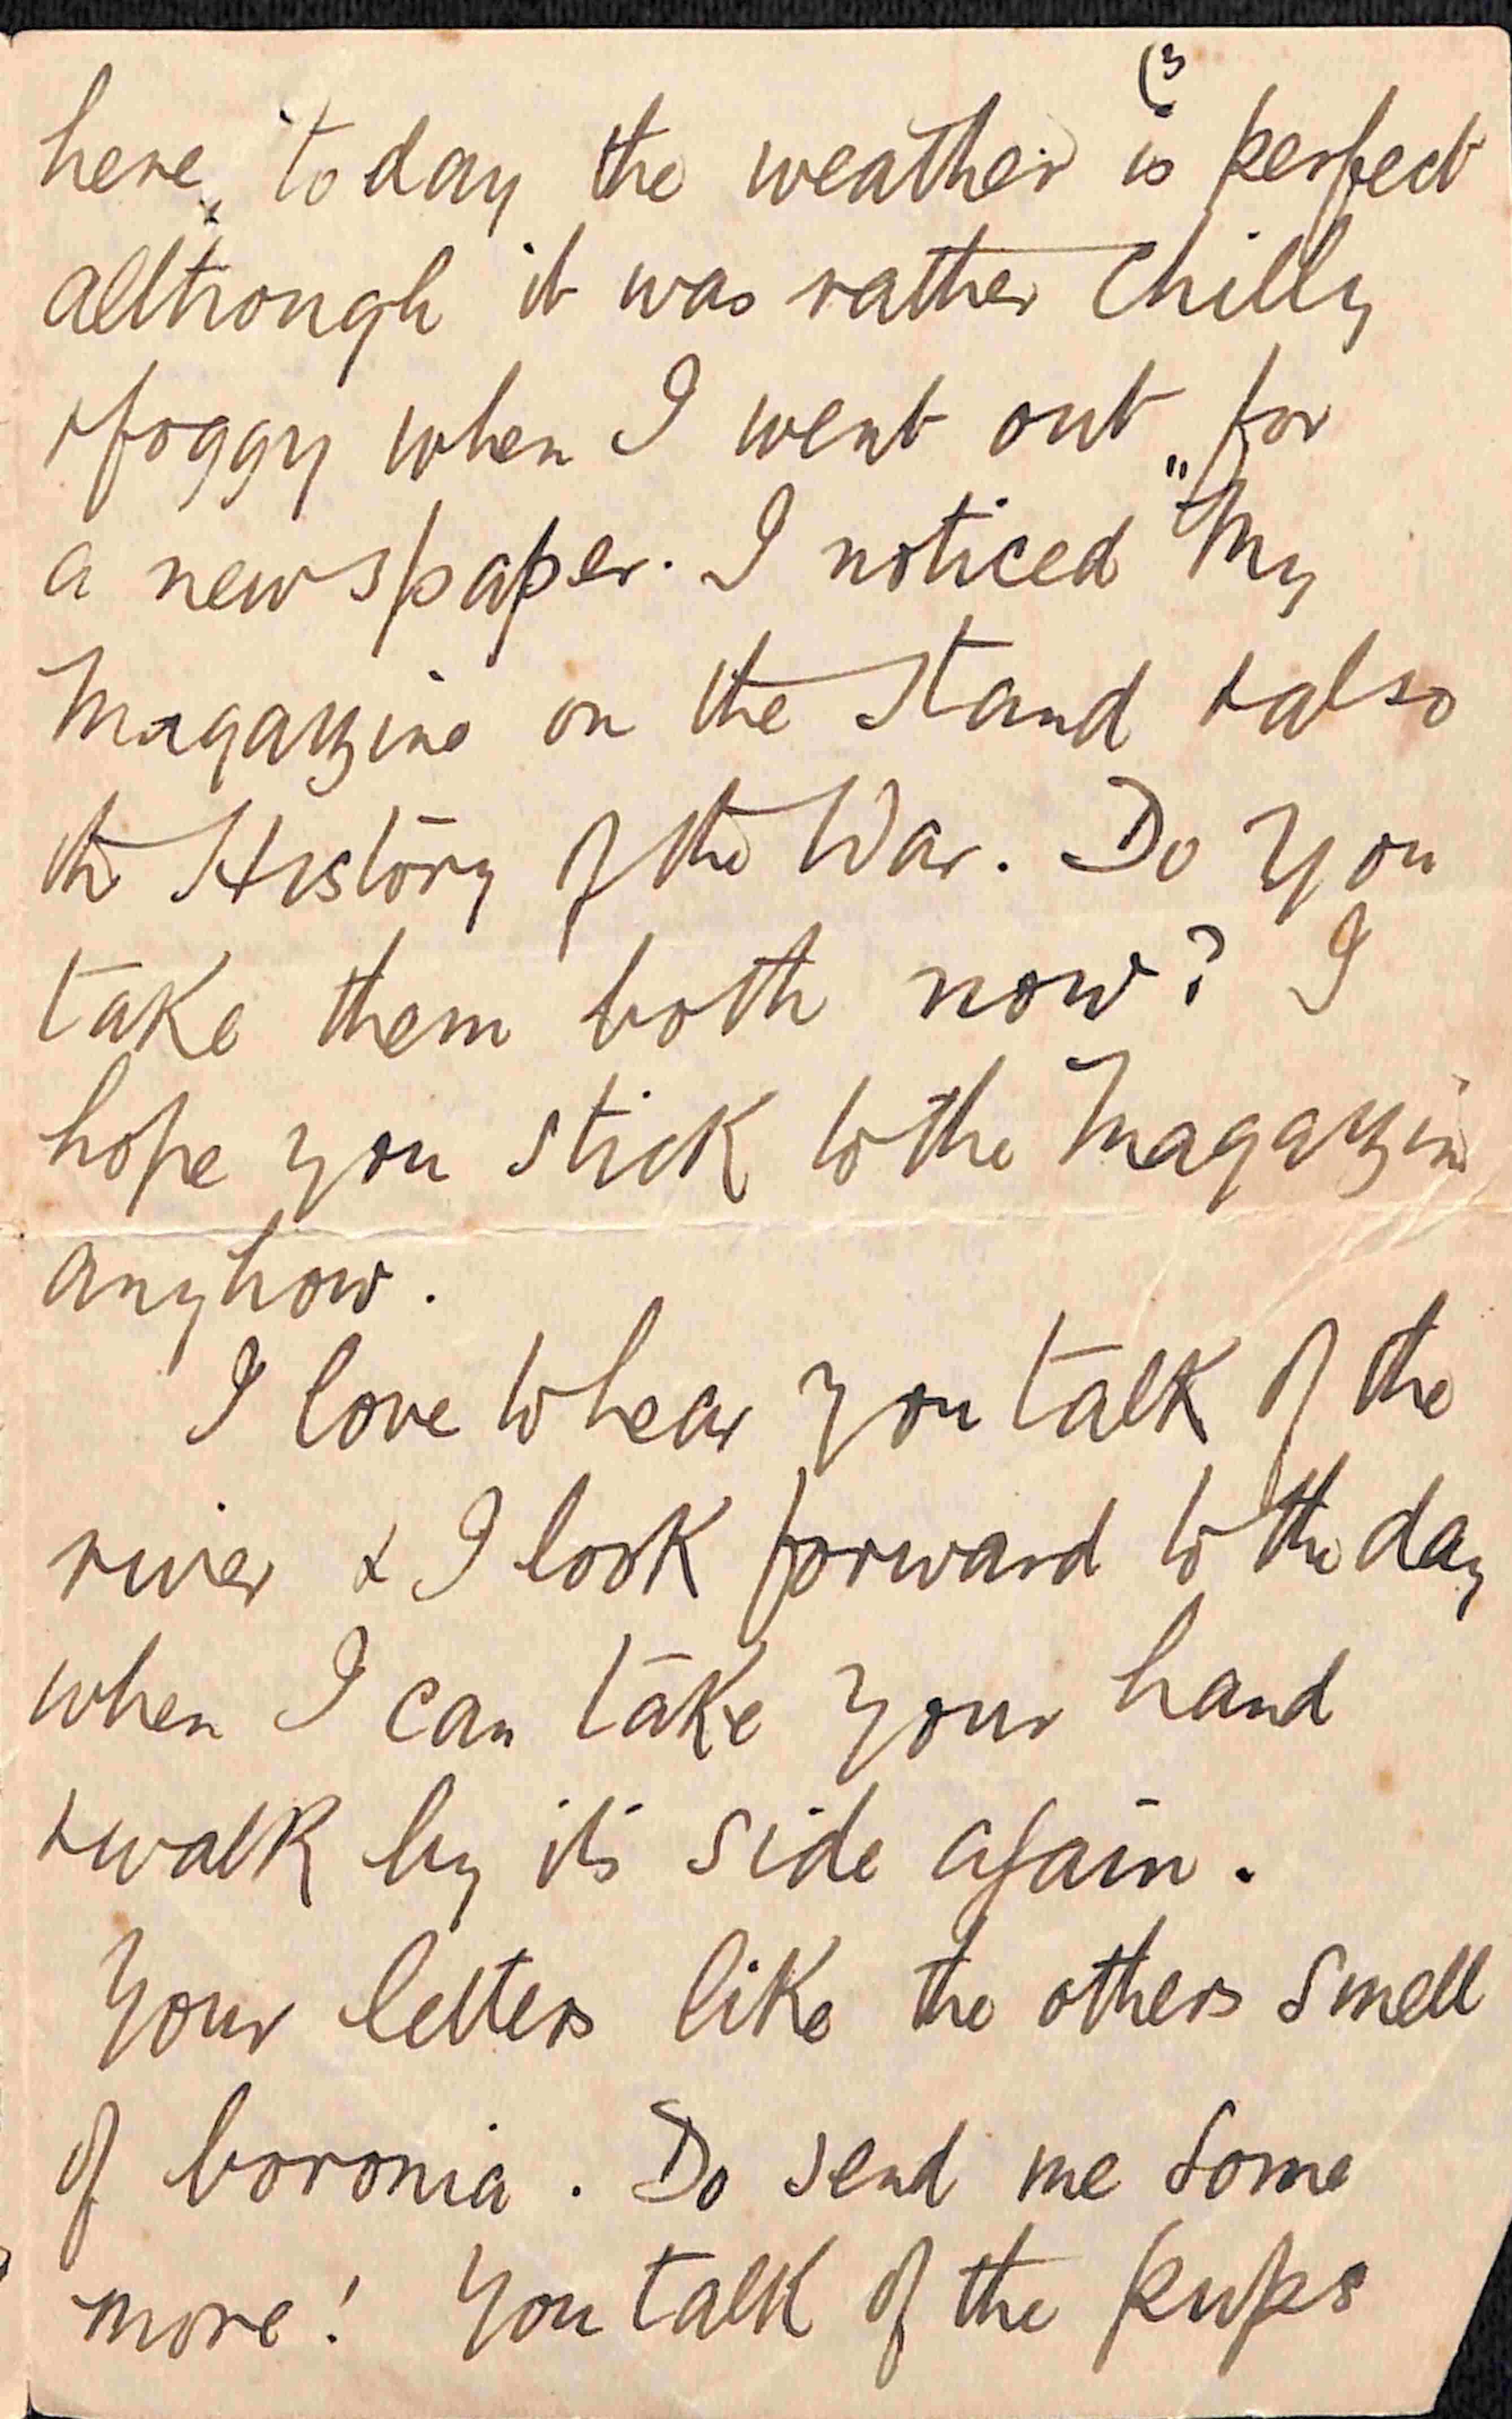 (3
here, today the weather is perfect
although it was rather chilly
& foggy when I went out for
a newspaper. I noticed "My
Magazine on the stand & also
the History of the War. Do you
take them both now? I
hope you stick to the Magazine
anyhow.
I love to hear you talk of the
river & I look forward to the day
when I can take your hand
& walk by its side again.
Your letters like the others smell
of boronia. Do send me some
more! You talk of the pups